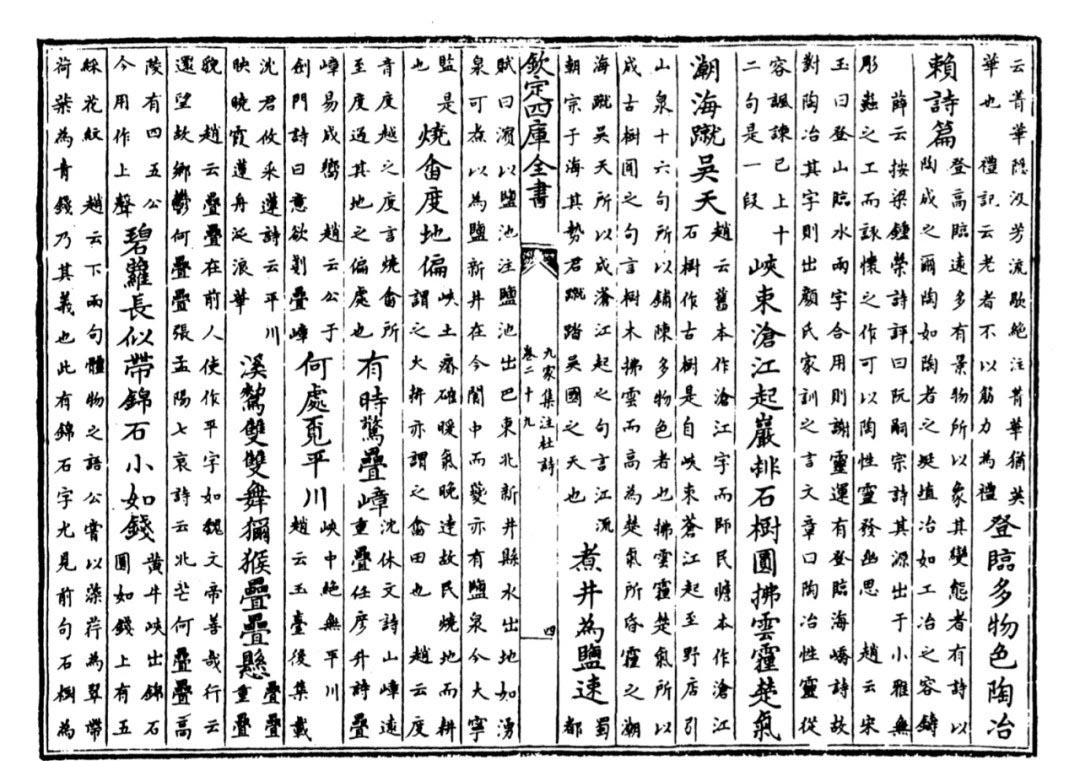 云菁華隱汲芳流歇絶注菁華猶英
華也 禮記云老者不以筋力為禮
登臨多物色陶冶
賴詩篇
登高臨遠多有景物所以象其變態者有詩以
陶成之爾陶如陶者之埏埴冶如工冶之容鑄
薛云按梁鍾榮詩評曰阮嗣宗詩其源出于小雅無
彫蟲之工而詠懷之作可以陶性靈發幽思 趙云宋
玉曰登山臨水兩字合用則謝靈運有登臨海嶠詩故
對陶冶其字則出顔氏家訓之言文章曰陶冶性靈從
容諷諫已上十
二句是一段
峽束滄江起巖排石樹圓拂雲霾楚氣
潮海蹴吳天
趙云舊本作滄江字而師民瞻本作滄江
石樹作古樹是自峽束蒼江起至野店引
山泉十六句所以鋪陳多物色者也拂雲霾楚氣所以
成古樹圓之句言樹木拂雲而高為楚氣所昏霾之潮
海蹴吳天所以成滄江起之句言江流
朝宗于海其勢君蹴踏吳國之天也
煮井為鹽速
蜀
都
欽定四庫全書
九家集注杜詩
卷二十九
四
賦曰濱以鹽池注鹽池出巴東北新井縣水出地如湧
泉可煮以為鹽新井在今閬中而夔亦有鹽泉今大寧
監是
也
燒畬度地偏
峽土瘠确暖氣晚達故民燒地而耕
謂之火耕亦謂之畬田也 趙云度
音度越之度言燒畬所
至度過其地之偏處也
有時驚疊嶂
沈休文詩山嶂遠
重疊任彦升詩疊
嶂易成響 趙云公于
劍門詩曰意欲剗疊嶂
何處覓平川
峽中絶無平川
趙云玉臺後集載
沈君攸采蓮詩云平川
映曉霞蓮舟泛浪華
溪鷘雙雙舞獼猴疊疊懸
疊疊
重疊
貌 趙云疊疊在前人使作平字如魏文帝善哉行云
還望故鄉鬱何疊疊張孟陽七哀詩云北芒何疊疊高
陵有四五公
今用作上聲
碧蘿長似帶錦石小如錢
黃牛峽出錦石
圓如錢上有五
綵花紋 趙云下兩句體物之語公嘗以藻荇為翠帶
荷葉為青錢乃其義也此有錦石字尤見前句石樹為